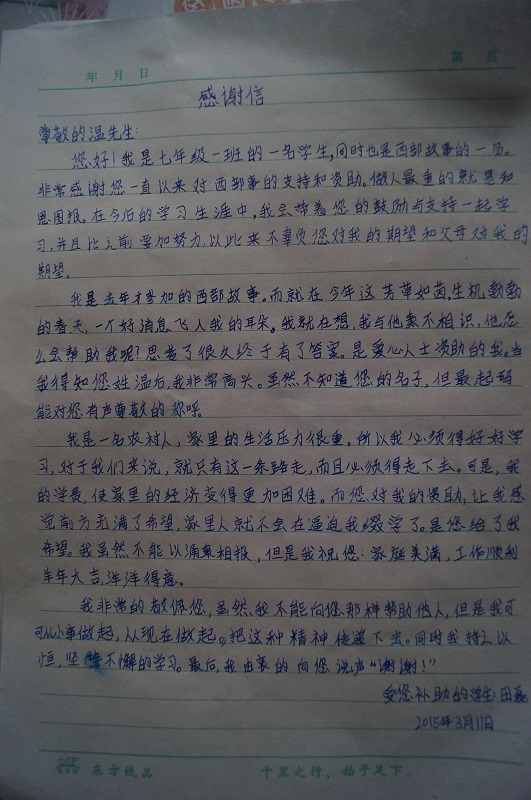 第 页
年 月 日
感谢信
尊敬的温先生:
您好!我是七年级一班的一名学生,同时也是西部故事的一员。
非常感谢您一直以来对西部事的支持和资助。做人最重的就是知
恩图报。在今后的学习生涯中,我会带着您的鼓励与支持一起学
习,并且比之前要加努力,以此来不辜负您对我的期望和父母对我的
期望。
我是去年才参加的西部故事。而就在今年这芳草如茵,生机勃勃
的春天,一个好消息飞入我的耳朵。我就在想,我与他素不相识,他怎
么会帮助我呢?思考了很久终于有了答案。是爱心人士资助的我。当
我得知您姓温后,我非常高兴。虽然不知道您的名子,但最起码
能对您有声尊敬的称呼。
我是一名农村人,家里的生活压力很重,所以我必须得好好学
习,对于我们来说,就只有这一条路走,而且必须得走下去。可是,我
的学费,使家里的经济变得更加困难。而您对我的资助,让我感
觉前方充满了希望,家里人就不会在逼迫我辍学了。是您给了我
希望。我虽然不能以涌泉相报,但是我祝您:家庭美满,工作顺利
羊年大吉,洋洋得意。
我非常的敬佩您,虽然我不能向您那样帮助他人,但是我可
可以从小事做起,从现在做起。把这种精神传递下去。同时我持之以
恒,坚 不懈的学习。最后,我由衷的向您说声“谢谢!”
受您补助的学生:田磊
2015年3月11日
东方纸品 千里之行,始于足下。